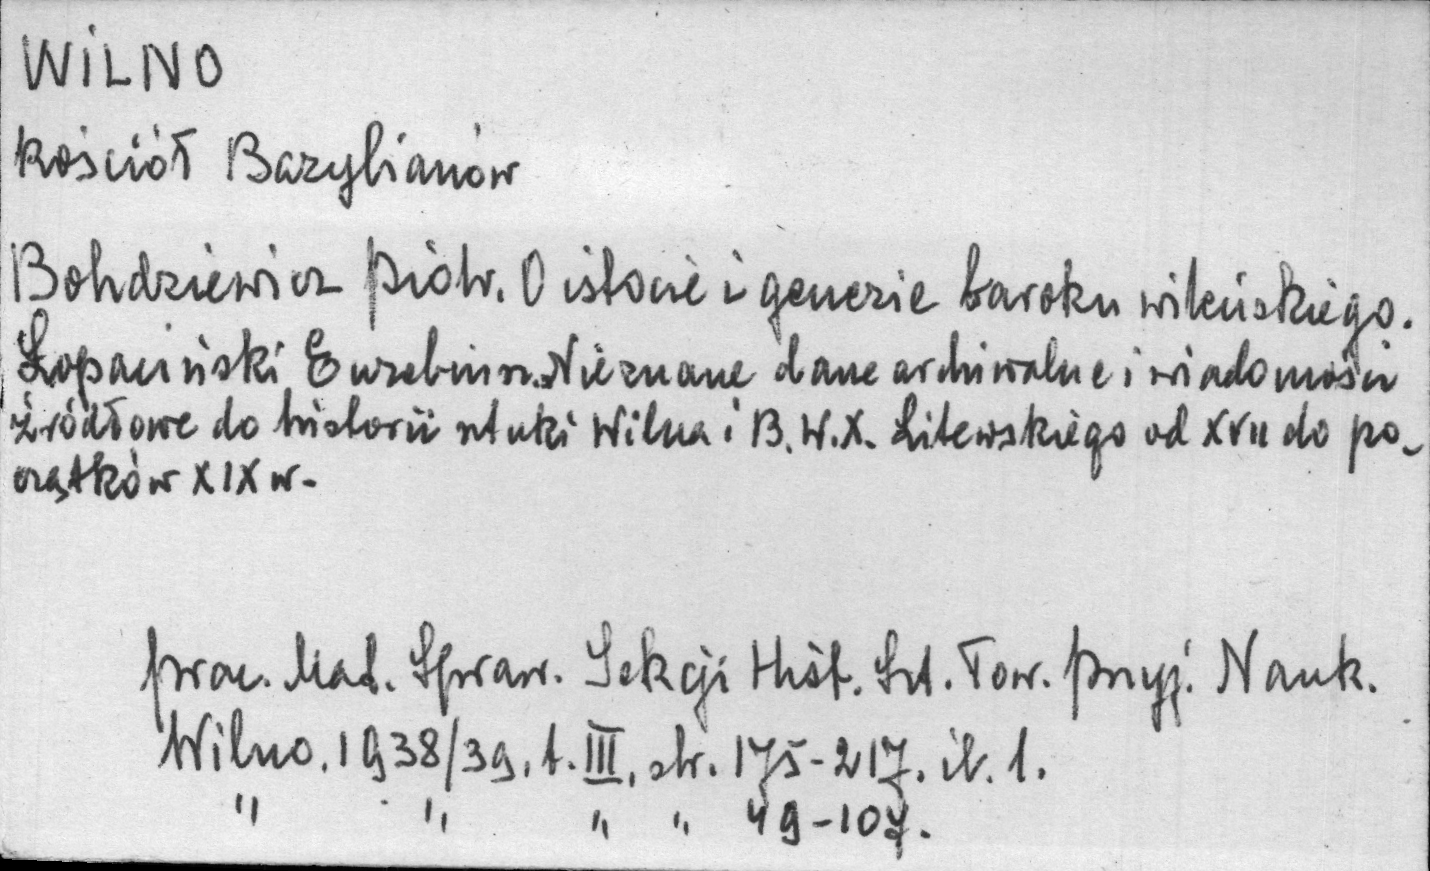 WILNO
kościół Bazylianów
Bohdziewicz Piotr. O istocie i genezie baroku wileńskiego.
Łopaciński Euzebiusz. Nieznane dane archiwalne i wiadomości
źródłowe do historii sztuki Wilna i B. W. X. Litewskiego od XVII do po-
czątków XIX w.
Prac. Mat. Spraw. Sekcji Hist. Szt. Tow. Przyj. Nauk.
Wilno. 1938/39, t. III, str. 175-217. il. 1.
" " " " 49-107.